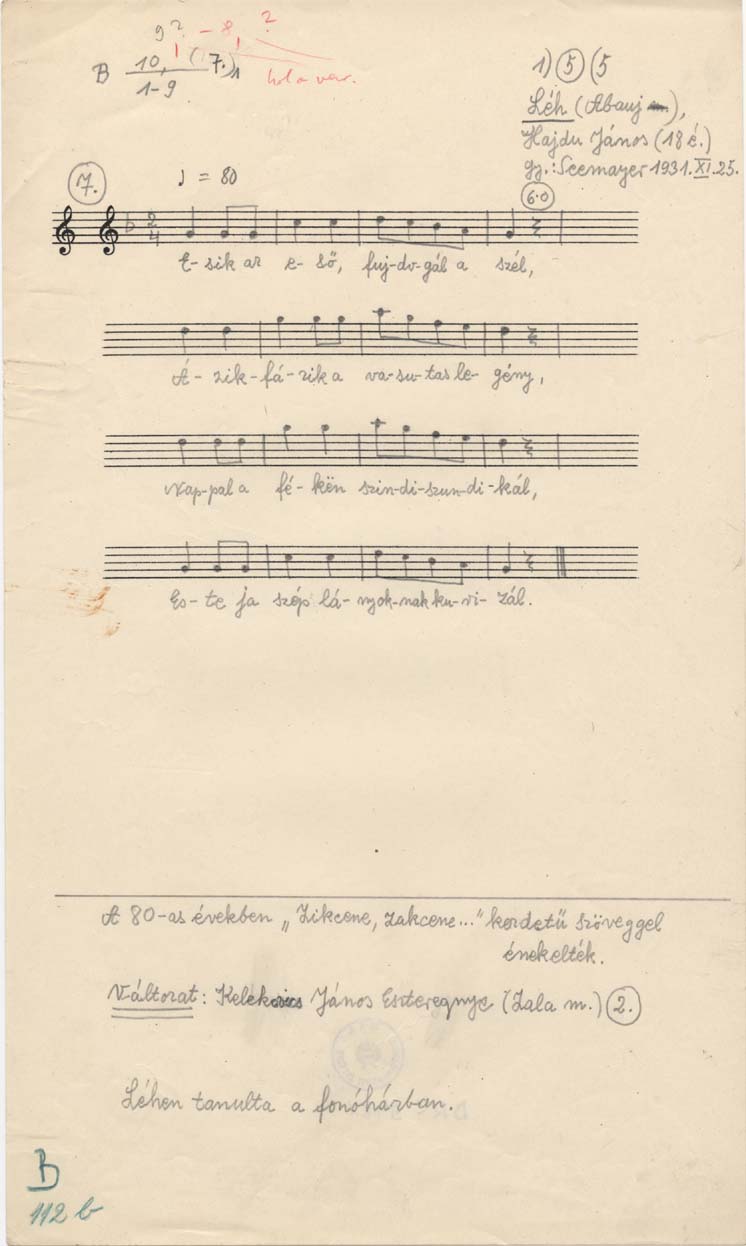 9? - 8, ?
B 10, (7.)1
1-9
hol a var.
1) 5 (5
Léh (Abauj m),
Hajdu János (18 é.)
gy.: Seemayer 1931. XI. 25.
7.
♩ = 80
6·0
2
4
E- sik az e- ső, fuj-do-gál a szél,
Á- zik-fá-zik a va-su-tas le- gény,
Nap-pal a fé- kën szin-di-szun-di-kál,
Es- te ja szép lá- nyok-nak ku-vi- zál.
A 80-as években „Zikcene, zakcene..." kezdetű szöveggel
énekelték.
Változat: Kelekovics János Eszteregnye (Zala m.) 2.
Léhen tanulta a fonóházban.
B
112 b